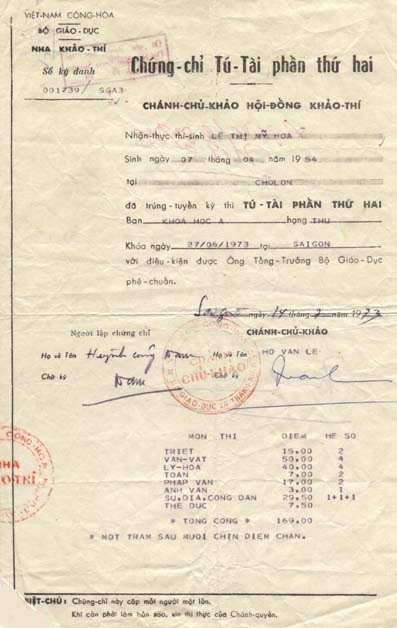 VIỆT-NAM CỘNG-HÒA
BỘ GIÁO-DỤC
NHA KHẢO-THÍ
Số ký danh
001739/ SGA3
Chứng-chỉ Tú-Tài phần thứ hai
CHÁNH-CHỦ-KHẢO HỘI-ĐỒNG KHẢO-THÍ
Nhận-thực thí-sinh LÊ THỊ MỸ HOA
Sinh ngày 07 tháng 04 năm 1954
tại CHOLON
đã trúng-tuyển kỳ thi TÚ-TÀI PHẦN THỨ HAI
Ban KHOA HOC A hạng THU
Khóa ngày 27/06/1973 tại SAIGON
với điều-kiện được Ông Tổng-Trưởng Bộ Giáo-Dục
phê-chuẩn.
Saigon ngày 14 tháng 7 năm 1973
Người lập chứng chỉ CHÁNH-CHỦ-KHẢO
Họ và Tên Huỳnh công Nam Họ và Tên HO VAN LE
Chữ ký Nam Chữ Ký
CHÁNH
CHỦ-KHẢO
NHA
KHẢO-THÍ
MON THI DIEM HE SO
TRIET 15.00 2
VAN-VAT 50.00 4
LY-HOA 40.00 4
TOAN 7.00 2
PHAP VAN 17.00 2
ANH VAN 3.00 1
SU,DIA,CONG DAN 29.50 1+1+1
THE DUC 7.50
* TONG CONG * 169.00
* MOT TRAM SAU MUOI CHIN DIEM CHAN.
VIỆT-CHÚ: Chứng-chỉ này cấp mỗi người một lần.
Khi cần phải làm bản sao, xin thị thực của Chánh-quyền.